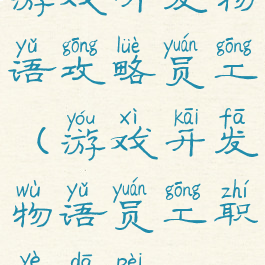 游戏开发物
yǔ gōng lüè yuán gōng
语攻略员工
yóu xì kāi fā
(游戏开发
wù yǔ yuán gōng zhí
物语员工职
yè dō pèi